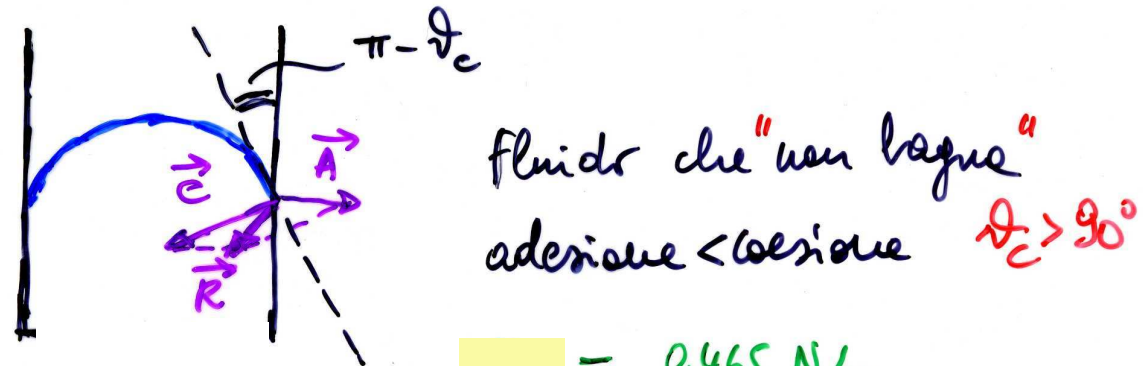 π - ϑc
A
C
R
fluido che "non bagna"
adesione < coesione ϑc > 90°
= 0.465 N/